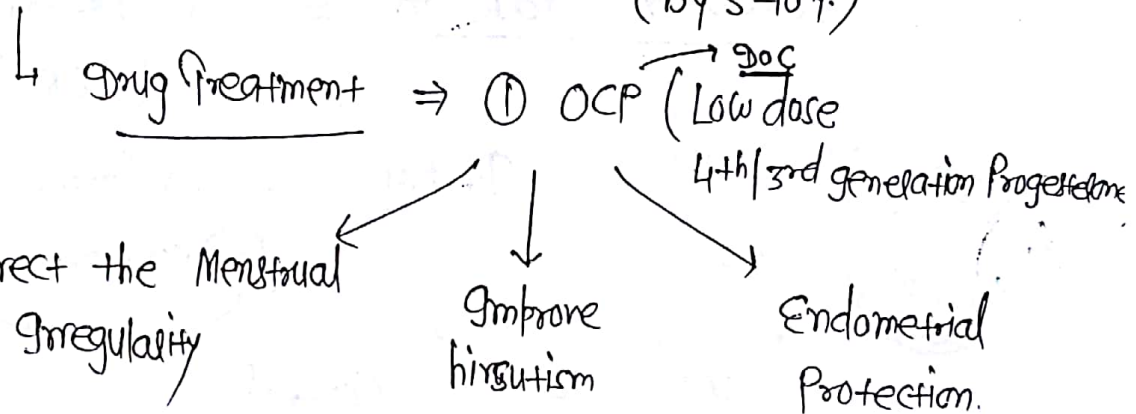 (by 5-10%)
↳ Drug Treatment ⇒ ① OCP (Low dose
DOC
4th/3rd generation Progesterone
rect the Menstrual
Irregularity
Improve
hirsutism
Endometrial
Protection.